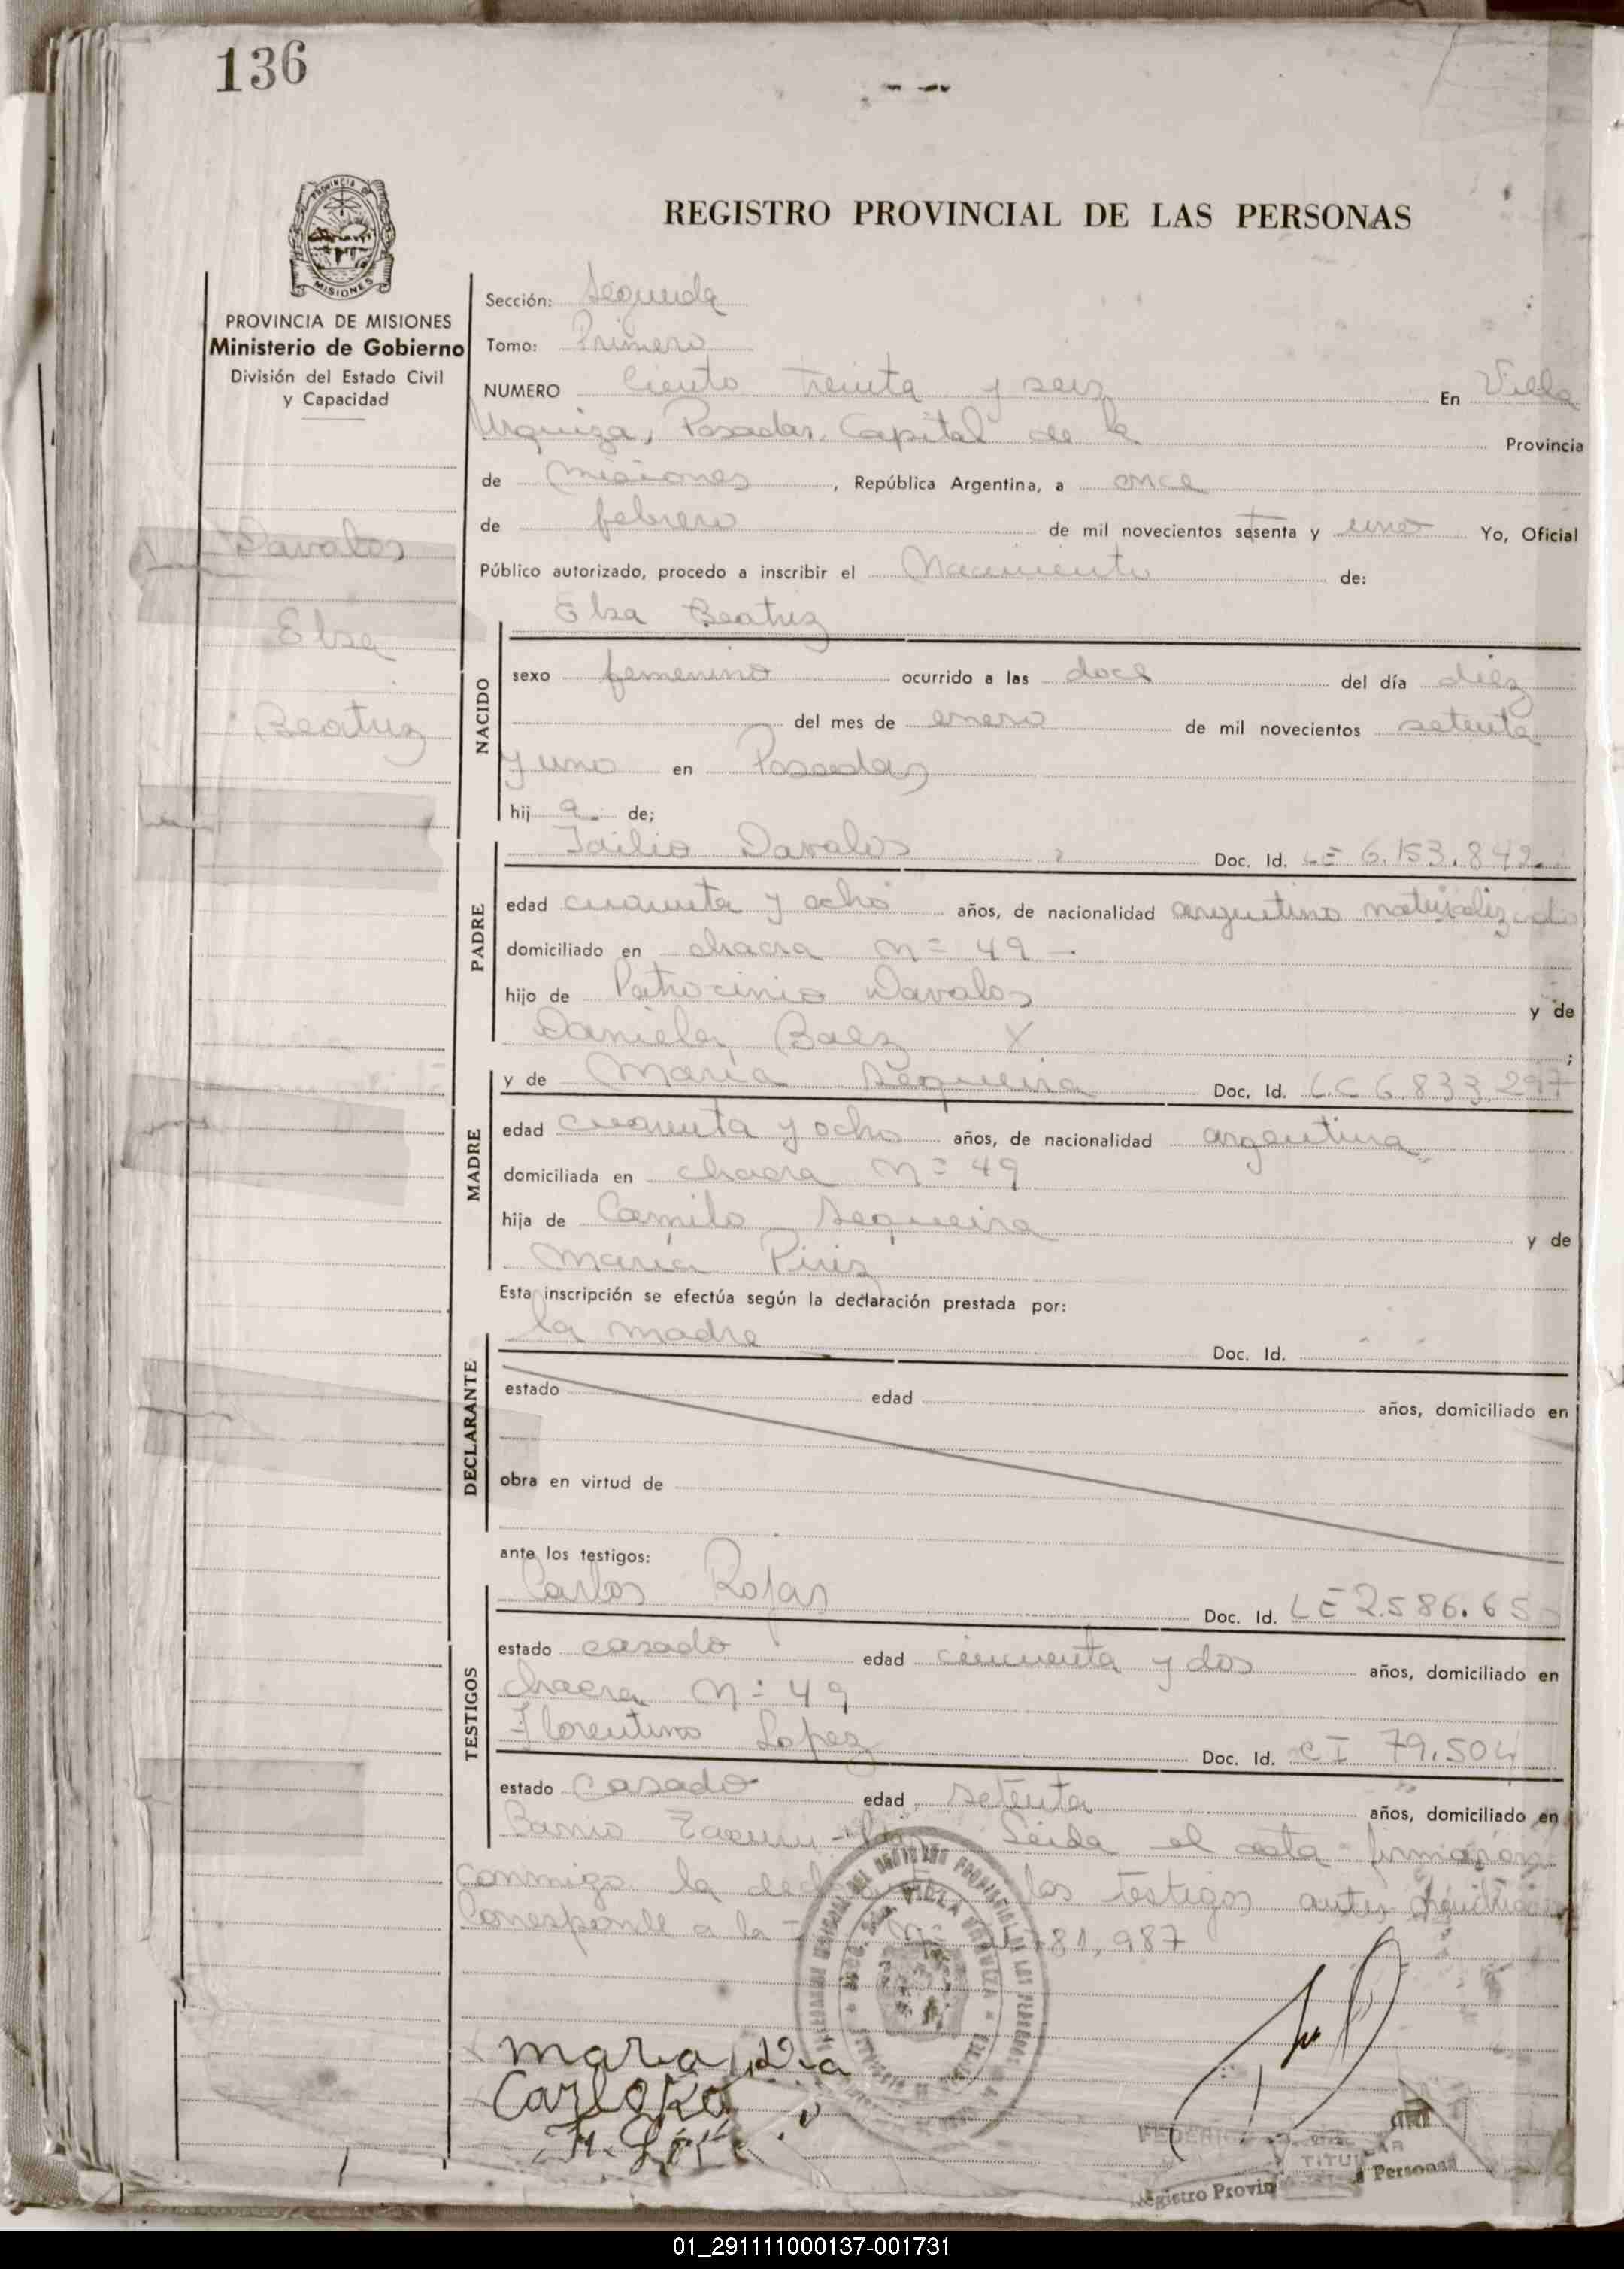 136
PROVINCIA DE
MISIONES
REGISTRO PROVINCIAL DE LAS PERSONAS
PROVINCIA DE MISIONES
Ministerio de Gobierno
División del Estado Civil
y Capacidad
Davalos
Elsa
Beatriz
Sección: Segunda
Tomo: Primero
NUMERO Ciento treinta y seis En Villa
Urquiza, Posadas, Capital de la Provincia
de Misiones, República Argentina, a once
de febrero de mil novecientos setenta y uno Yo, Oficial
Público autorizado, procedo a inscribir el Nacimiento de:
Elsa Beatriz
NACIDO
sexo femenino ocurrido a las doce del día diez
del mes de enero de mil novecientos setenta
y uno en Posadas
hija de;
PADRE
Davalos Doc. Id. LE 6.153.842
edad cuarenta y ocho años, de nacionalidad argentino naturalizado
domiciliado en chacra Nº 49
hijo de Patrocinio Davalos y de
Daniela Baez ;
MADRE
y de Maria Sequeira Doc. Id. LC 6.833.297
edad cuarenta y ocho años, de nacionalidad argentina
domiciliada en chacra Nº 49
hija de Camilo Sequeira y de
Maria Piriz
Esta inscripción se efectúa según la declaración prestada por:
la madre Doc. Id.
DECLARANTE
estado edad años, domiciliado en
obra en virtud de
ante los testigos:
TESTIGOS
Carlos Rojas Doc. Id. LE 2.586.65
estado casado edad cincuenta y dos años, domiciliado en
chacra Nº 49
Florentino Lopez Doc. Id. CI 79.504
estado casado edad setenta años, domiciliado en
Barrio Leida el acta firmaron
conmigo la los testigos antes
Corresponde a la 781,987
VILLA URQUIZA
Maria
Carlo
F.
TITULAR
Registro Provin Personas
01_291111000137-001731